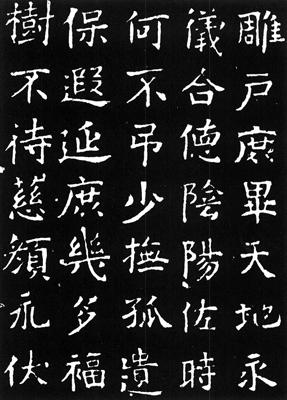 雕戶庶畢天地永
儀合德陰陽佐時
何不弔少撫孤遺
保遐延庶幾多福
樹不待慈顏永伏